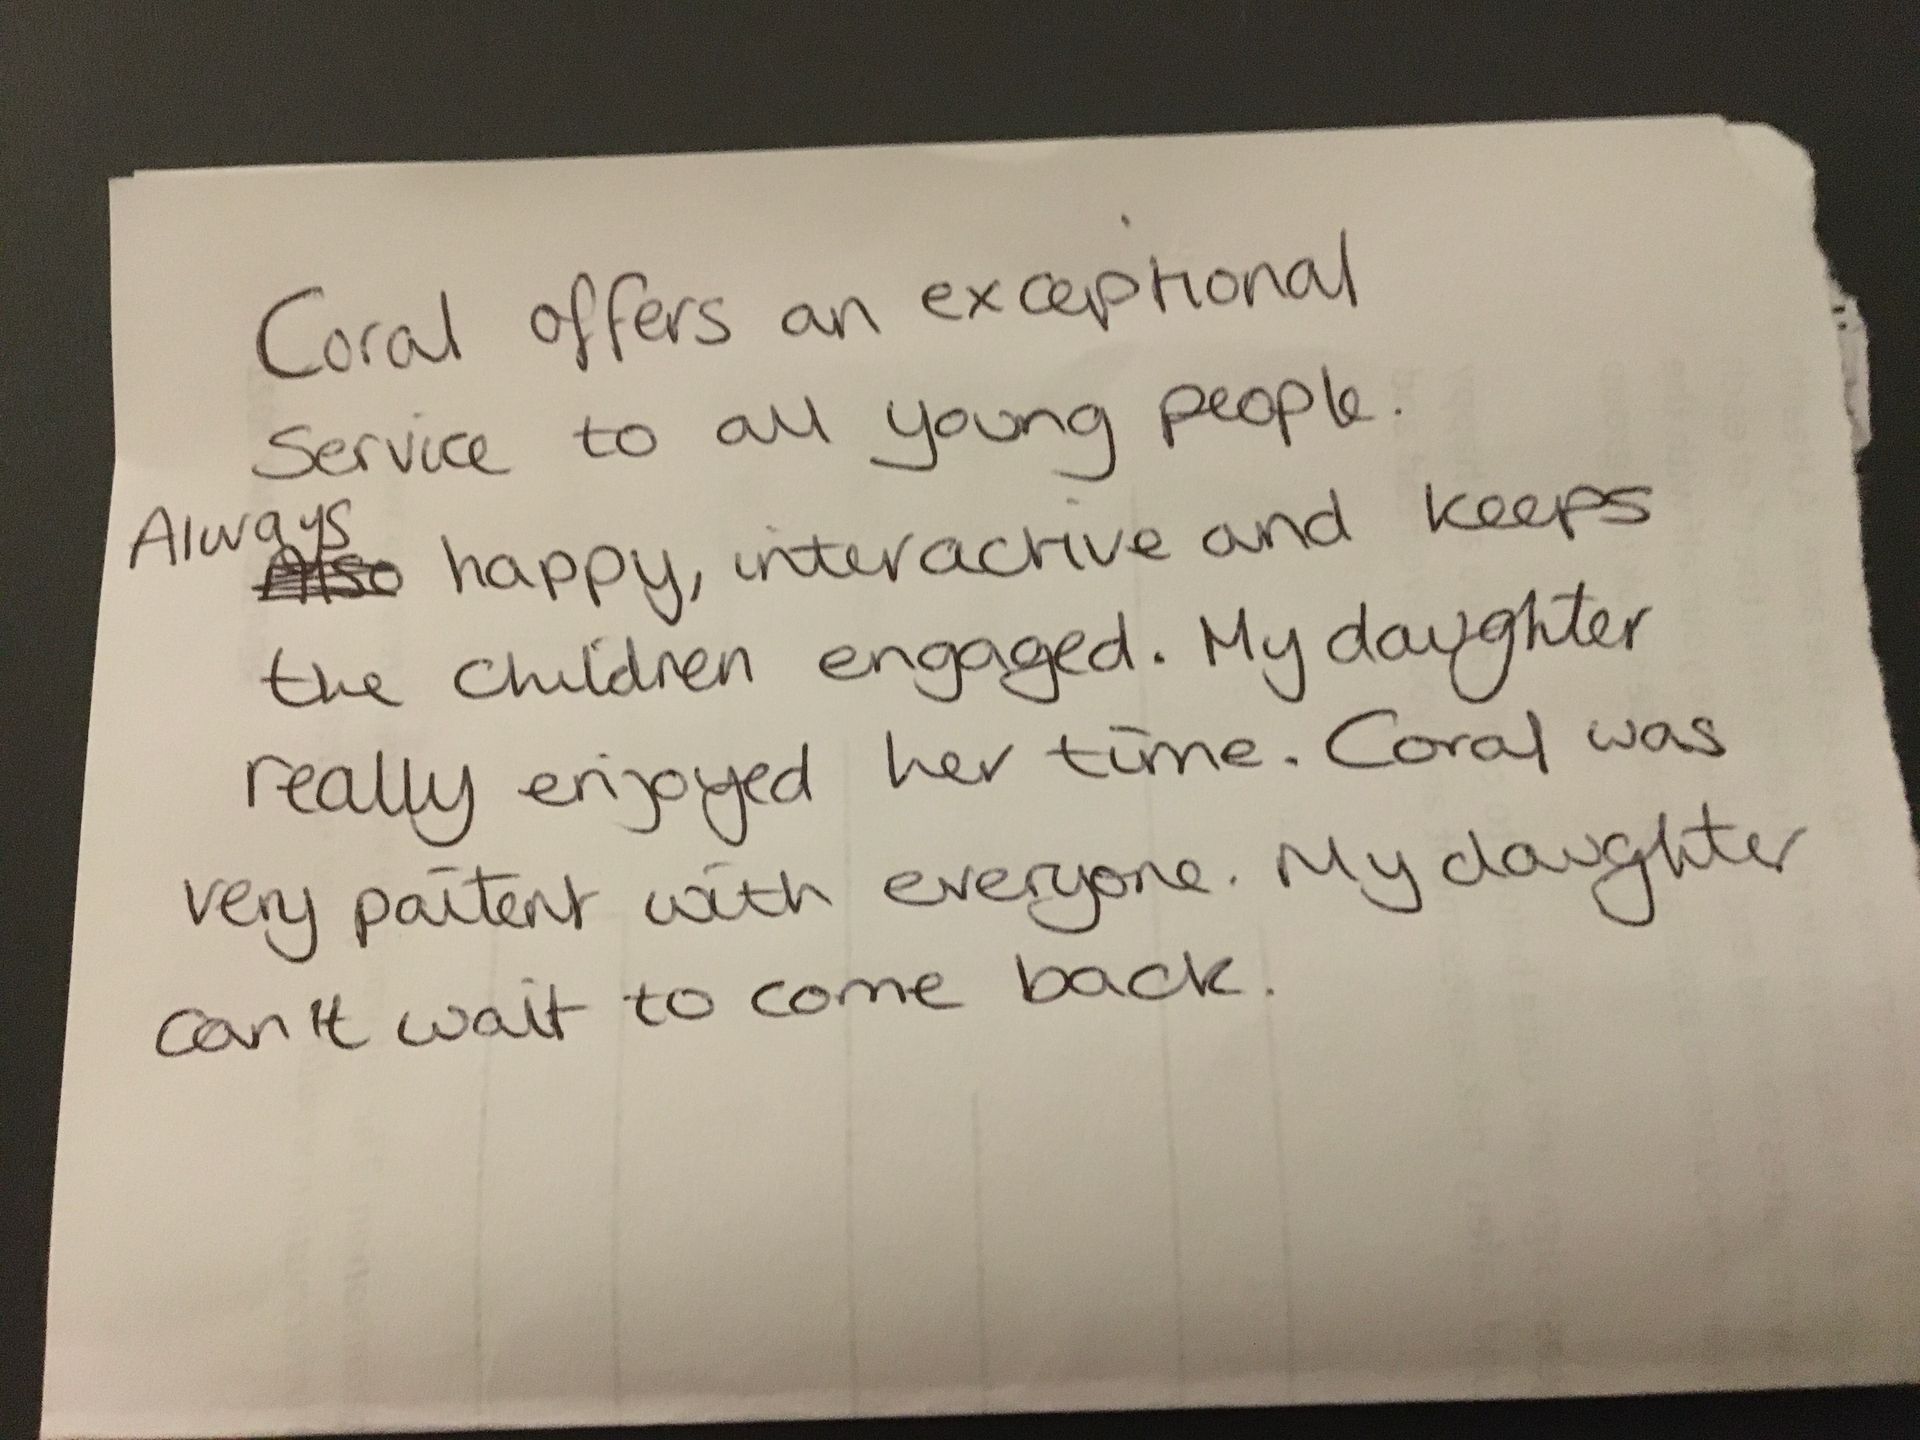 Coral offers an exceptional
service to all young people.
Always
Also happy, interactive and keeps
the children engaged. My daughter
really enjoyed her time. Coral was
very paitent with everyone. My daughter
can't wait to come back.